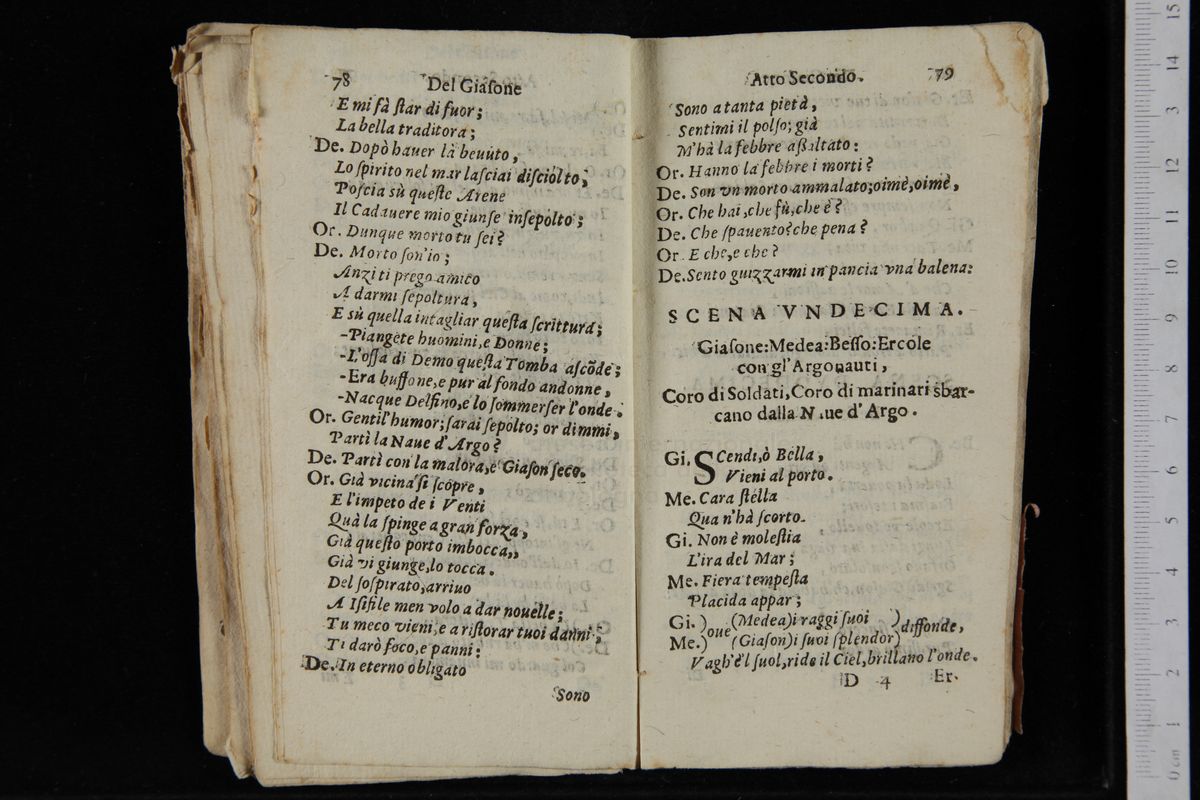 78 Del Giaſone
E mi fà ſtar di fuor;
La bella traditora;
De. Dopò hauer là beuuto,
Lo ſpirito nel mar laſciai diſciolto;
Poſcia sù queſte Arene
Il Cadauere mio giunſe inſepolto;
Or. Dunque morto tu ſei?
De. Morto ſon'io;
Anzi ti prego amico
A darmi ſepoltura,
E sù quella intagliar queſta ſcrittura;
-Piangete huomini, e Donne;
-L'oſſa di Demo queſta Tomba aſcõde;
-Era buffone, e pur al fondo andonne,
-Nacque Delfino, e lo ſommerſer l'onde.
Or. Gentil'humor; ſarai ſepolto; or dimmi,
Partì la Naue d'Argo?
De. Partì con la malora, e Giaſon ſeco.
Or. Già vicina ſi ſcopre,
E l'impeto de i Venti
Quà la ſpinge a gran forza,
Già queſto porto imbocca,,
Già vi giunge, lo tocca.
Del ſoſpirato, arriuo
A Iſifile men volo a dar nouelle;
Tu meco vieni, e a riſtorar tuoi danni;
Ti darò foco, e panni:
De. In eterno obligato
Sono
Atto Secondo. 79
Sono a tanta pietà,
Sentimi il polſo; già
M'hà la febbre aſſaltato:
Or. Hanno la febbre i morti?
De. Son vn morto ammalato; oimè, oimè,
Or. Che hai, che fù, che è?
De. Che ſpauento? che pena?
Or. E che, e che?
De. Sento guizzarmi in pancia vna balena:
SCENA VNDECIMA.
Giaſone: Medea: Beſſo: Ercole
con gl'Argonauti,
Coro di Soldati, Coro di marinari sbar-
cano dalla Naue d'Argo.
Gi. SCendi, ò Bella,
Vieni al porto.
Me. Cara ſtella
Qua n'hà ſcorto.
Gi. Non è moleſtia
L'ira del Mar;
Me. Fiera tempeſta
Placida appar;
Gi. ) oue (Medea) i raggi ſuoi ) diffonde,
Me. ) (Giaſon) i ſuoi ſplendor )
Vagh'è'l ſuol, ride il Ciel, brillano l'onde.
D 4 Er.